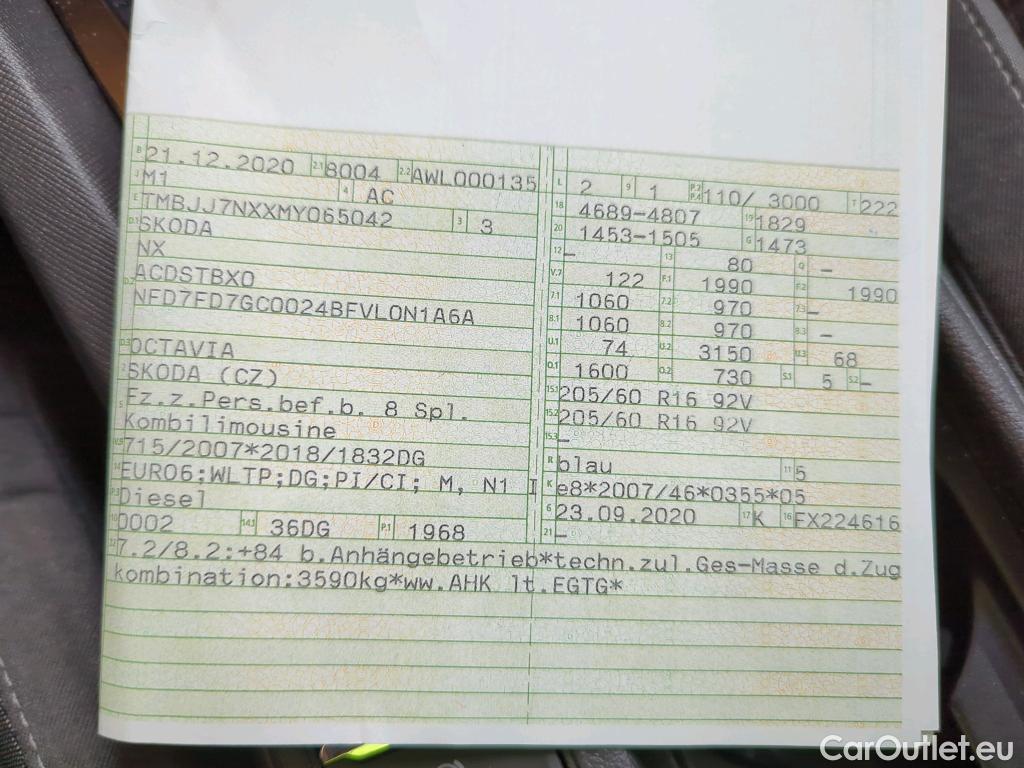 B 21.12.2020 2.1 8004 2.2 AWL000135
J M1 4 AC
E TMBJJ7NXXMY065042 3 3
D.1 SKODA
NX
D.2 ACDSTBX0
NFD7FD7GC0024BFVL0N1A6A
D.3 OCTAVIA
2 SKODA (CZ)
5 Fz.z.Pers.bef.b. 8 Spl.
Kombilimousine
V.9 715/2007*2018/1832DG
14 EURO6;WLTP;DG;PI/CI; M, N1 I
P.3 Diesel
10 0002 14.1 36DG P.1 1968
L 2 9 1 P.2 P.4 110/ 3000 T 222
18 4689-4807 19 1829
20 1453-1505 G 1473
12 – 13 80 Q –
V.7 122 F.1 1990 F.2 1990
7.1 1060 7.2 970 7.3 –
8.1 1060 8.2 970 8.3 –
U.1 74 U.2 3150 U.3 68
O.1 1600 O.2 730 S.1 5 S.2 –
15.1 205/60 R16 92V
15.2 205/60 R16 92V
15.3 –
R blau 11 5
K e8*2007/46*0355*05
6 23.09.2020 17 K 16 FX224616
21 –
22 7.2/8.2:+84 b.Anhängebetrieb*techn.zul.Ges-Masse d.Zug
kombination:3590kg*ww.AHK lt.EGTG*
CarOutlet.eu